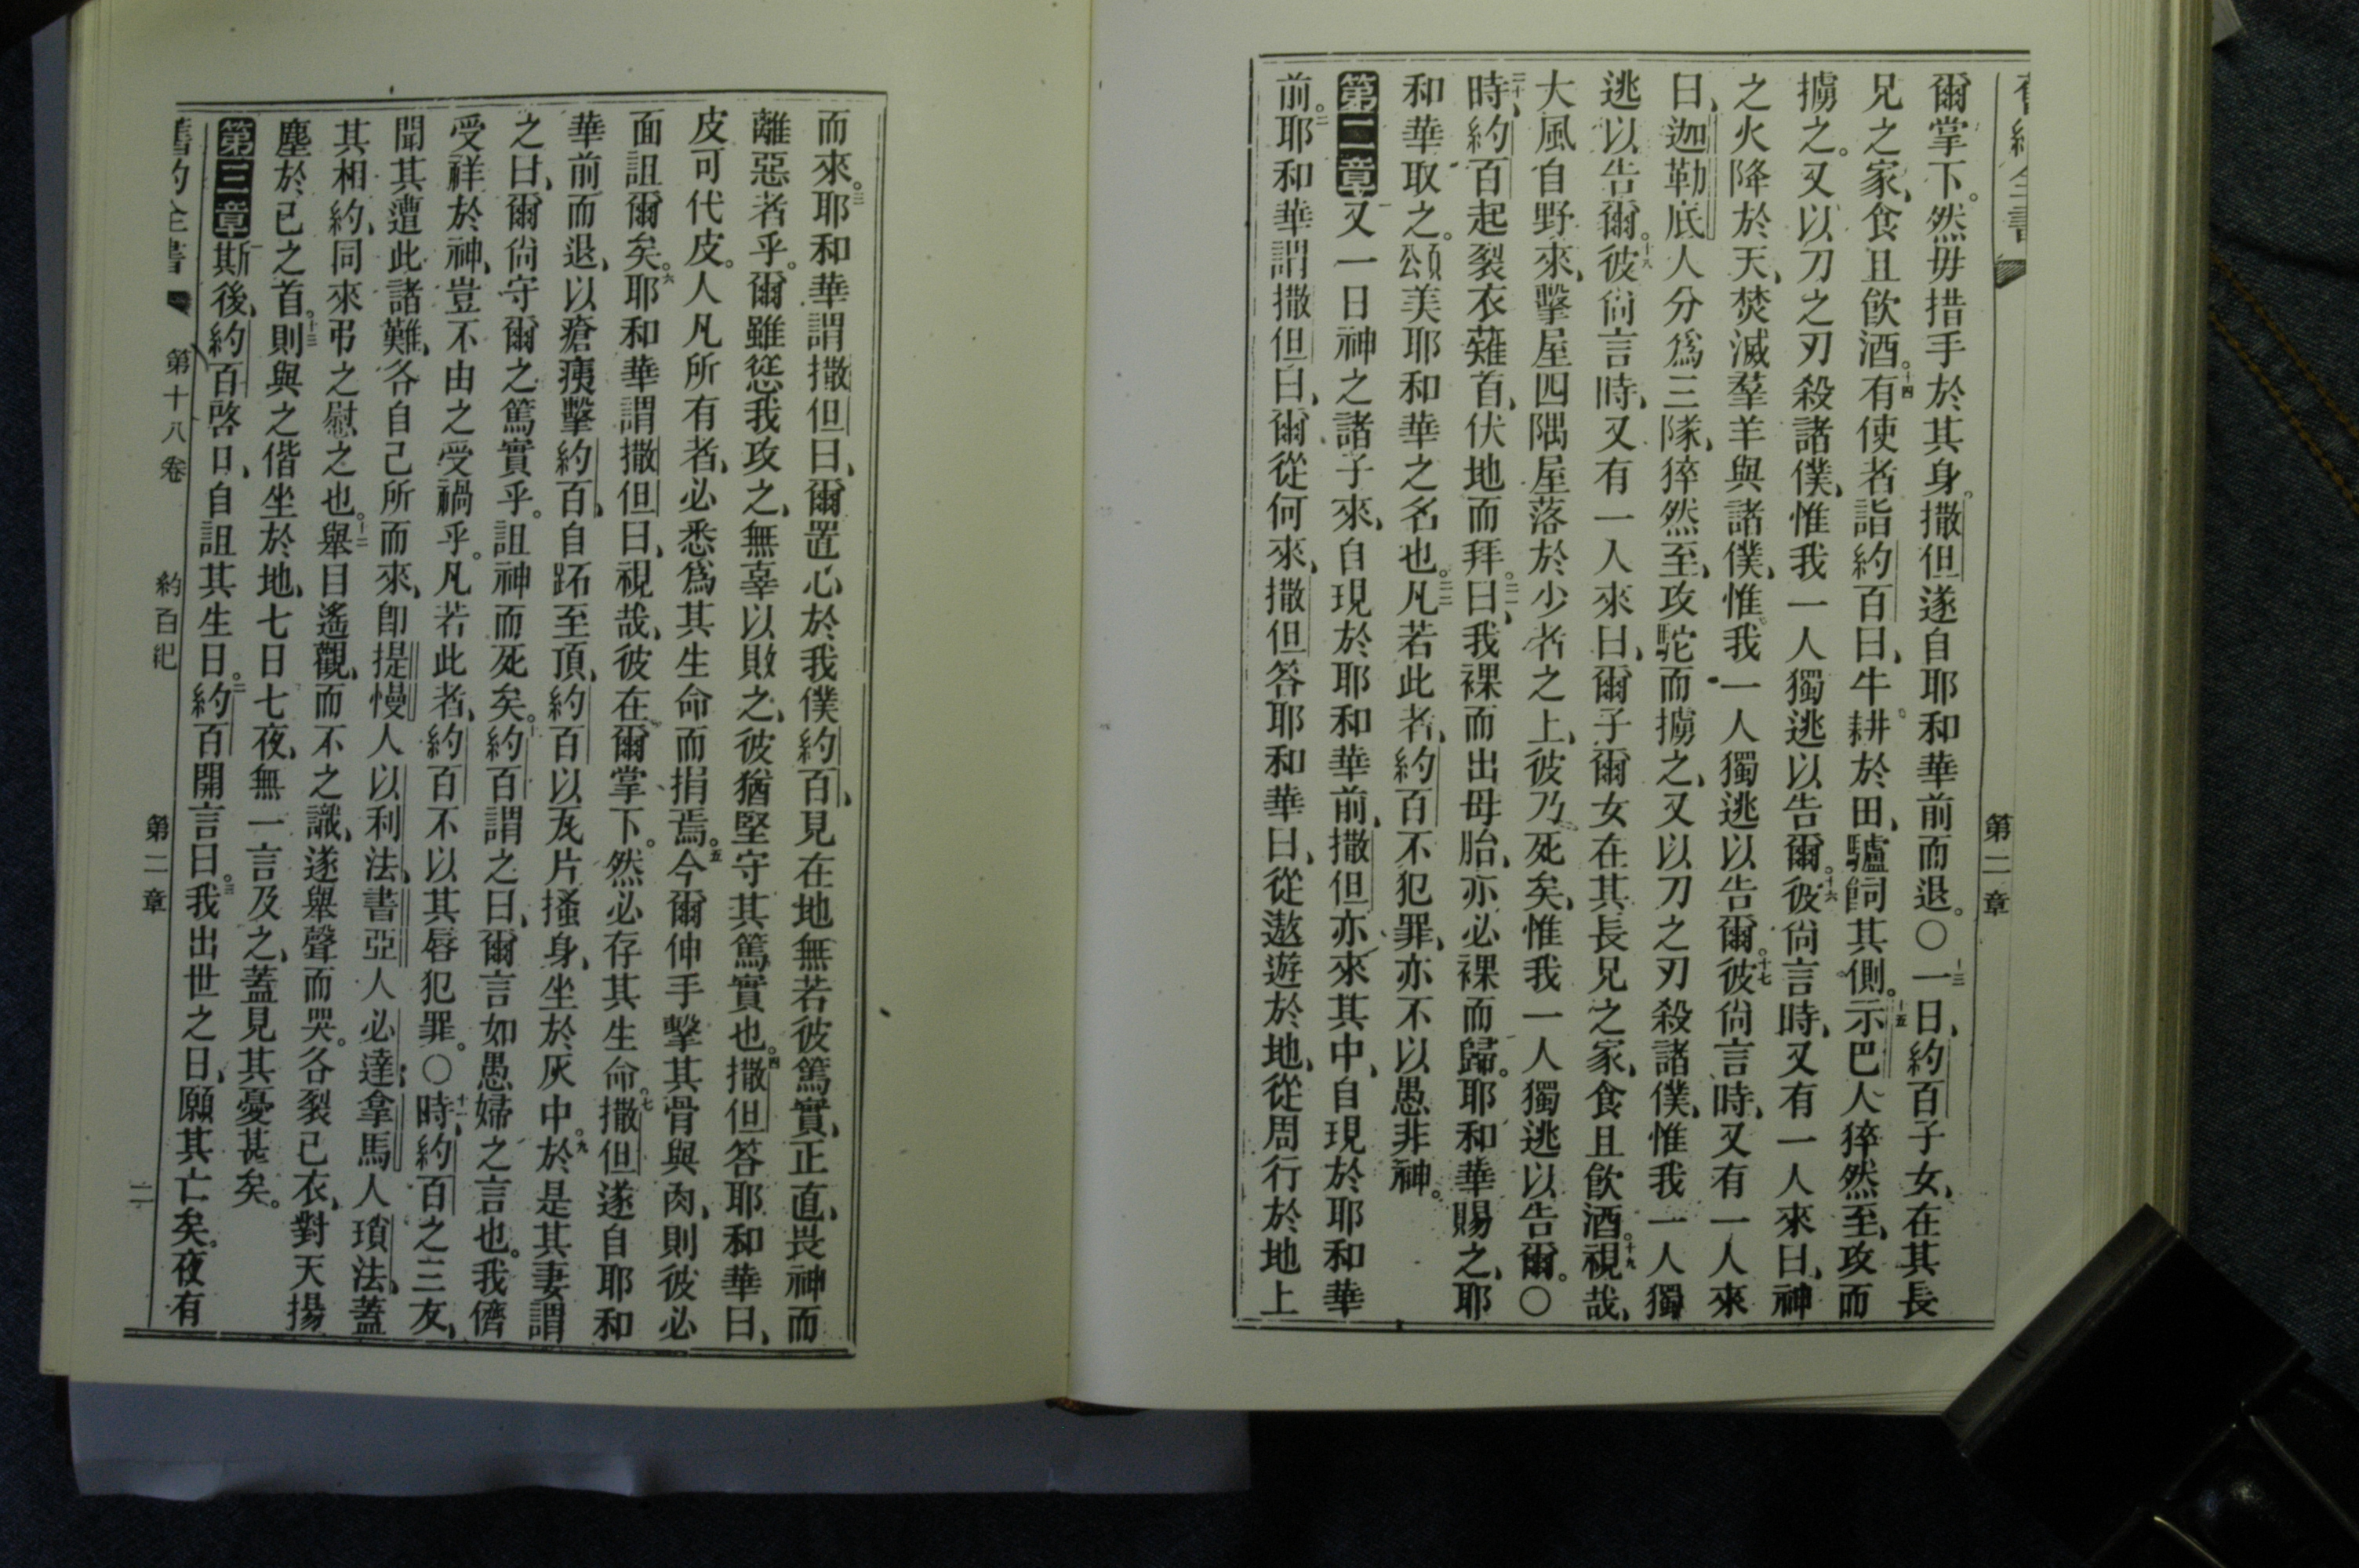 舊約全書
第二章
爾掌下。然毋措手於其身。撒但遂自耶和華前而退。○十三一日、約百子女、在其長
兄之家、食且飲酒。十四有使者詣約百曰、牛耕於田、驢飼其側。十五示巴人猝然至、攻而
擄之。又以刀之刃殺諸僕、惟我一人獨逃以告爾。十六彼尙言時、又有一人來曰、神
之火降於天、焚滅羣羊與諸僕、惟我一人獨逃以告爾。十七彼尙言時、又有一人來
曰、迦勒底人分爲三隊、猝然至、攻駝而擄之、又以刀之刃殺諸僕、惟我一人獨
逃以告爾。十八彼尙言時、又有一人來曰、爾子爾女在其長兄之家、食且飲酒。十九視哉、
大風自野來、擊屋四隅、屋落於少者之上、彼乃死矣、惟我一人獨逃以告爾。○
二十時、約百起裂衣薙首、伏地而拜。二一曰、我裸而出母胎、亦必裸而歸。耶和華賜之、耶
和華取之。頌美耶和華之名也。二二凡若此者、約百不犯罪、亦不以愚非神。
第二章一又一日神之諸子來、自現於耶和華前、撒但亦來其中、自現於耶和華
前。二耶和華謂撒但曰、爾從何來、撒但答耶和華曰、從遨遊於地、從周行於地上
而來。三耶和華謂撒但曰、爾置心於我僕約百、見在地無若彼篤實、正直、畏神而
離惡者乎。爾雖慫我攻之、無辜以敗之、彼猶堅守其篤實也。四撒但答耶和華曰、
皮可代皮。人凡所有者、必悉爲其生命而捐焉。五今爾伸手擊其骨與肉、則彼必
面詛爾矣。六耶和華謂撒但曰、視哉、彼在爾掌下。然必存其生命。七撒但遂自耶和
華前而退、以瘡痍擊約百、自跖至頂、約百以瓦片搔身、坐於灰中。九於是其妻謂
之曰、爾尙守爾之篤實乎。詛神而死矣。十約百謂之曰、爾言如愚婦之言也。我儕
受祥於神、豈不由之受禍乎。凡若此者、約百不以其唇犯罪。○十一時、約百之三友、
聞其遭此諸難、各自己所而來、卽提慢人以利法、書亞人必達、拿馬人瑣法、蓋
其相約、同來弔之慰之也。十二舉目遙觀、而不之識、遂舉聲而哭。各裂己衣、對天揚
塵於己之首。十三則與之偕坐於地、七日七夜、無一言及之、蓋見其憂甚矣。
第三章一斯後、約百啓口、自詛其生日。二約百開言曰。三我出世之日、願其亡矣。夜有
舊約全書 第十八卷 約百紀 第二章 二